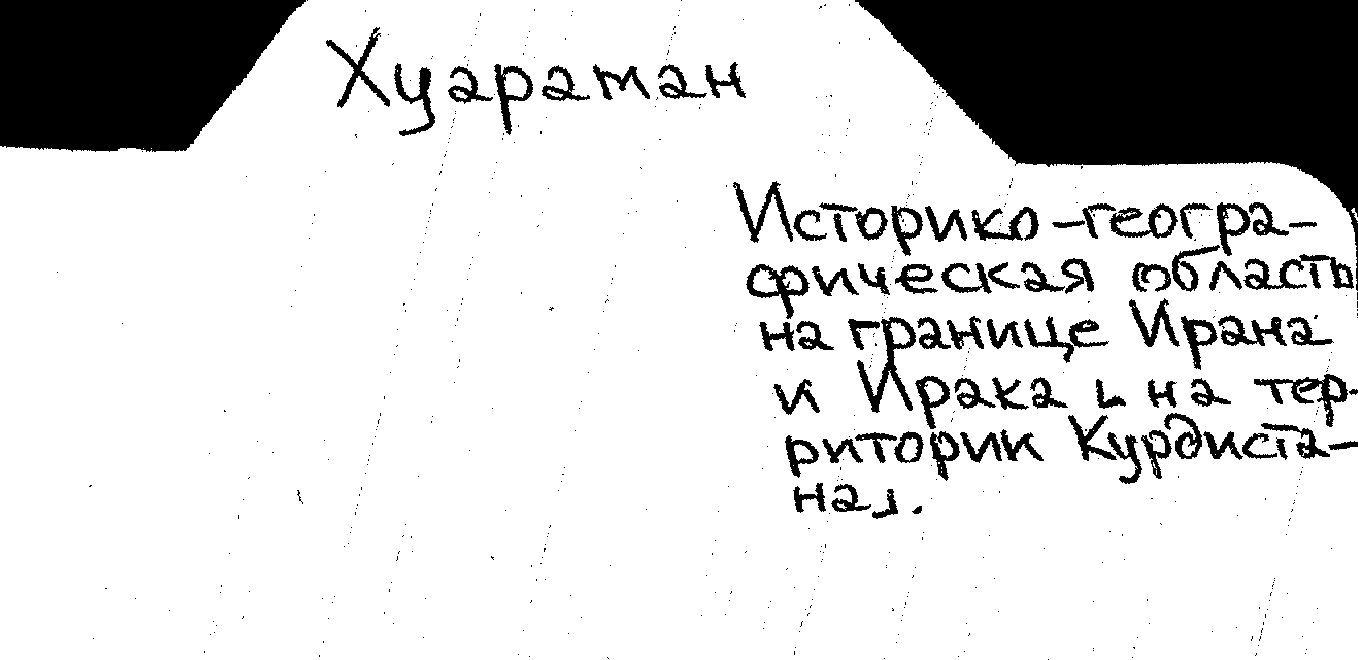 Хуараман
Историко-геогра-
фическая область
на границе Ирана
и Ирака ⌞на тер-
ритории Курдиста-
на⌟.